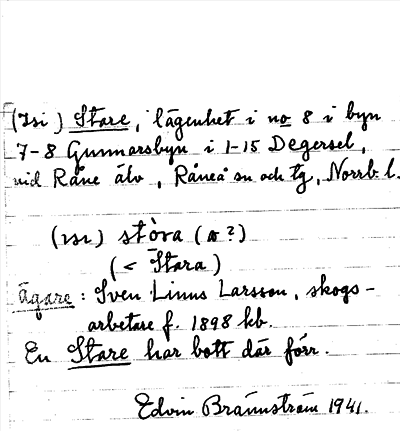 (Isi) Stare, lägenhet i no 8 i byn
7-8 Gunnarsbyn i 1-15 Degersel,
vid Råne älv, Råneå sn och tg, Norrb. l.
(ısı) stòra (a?)
(< Stara)
ägare: Sven Linus Larsson, skogs-
arbetare f. 1898 kb.
En Stare har bott där förr.
Edvin Brännström 1941.